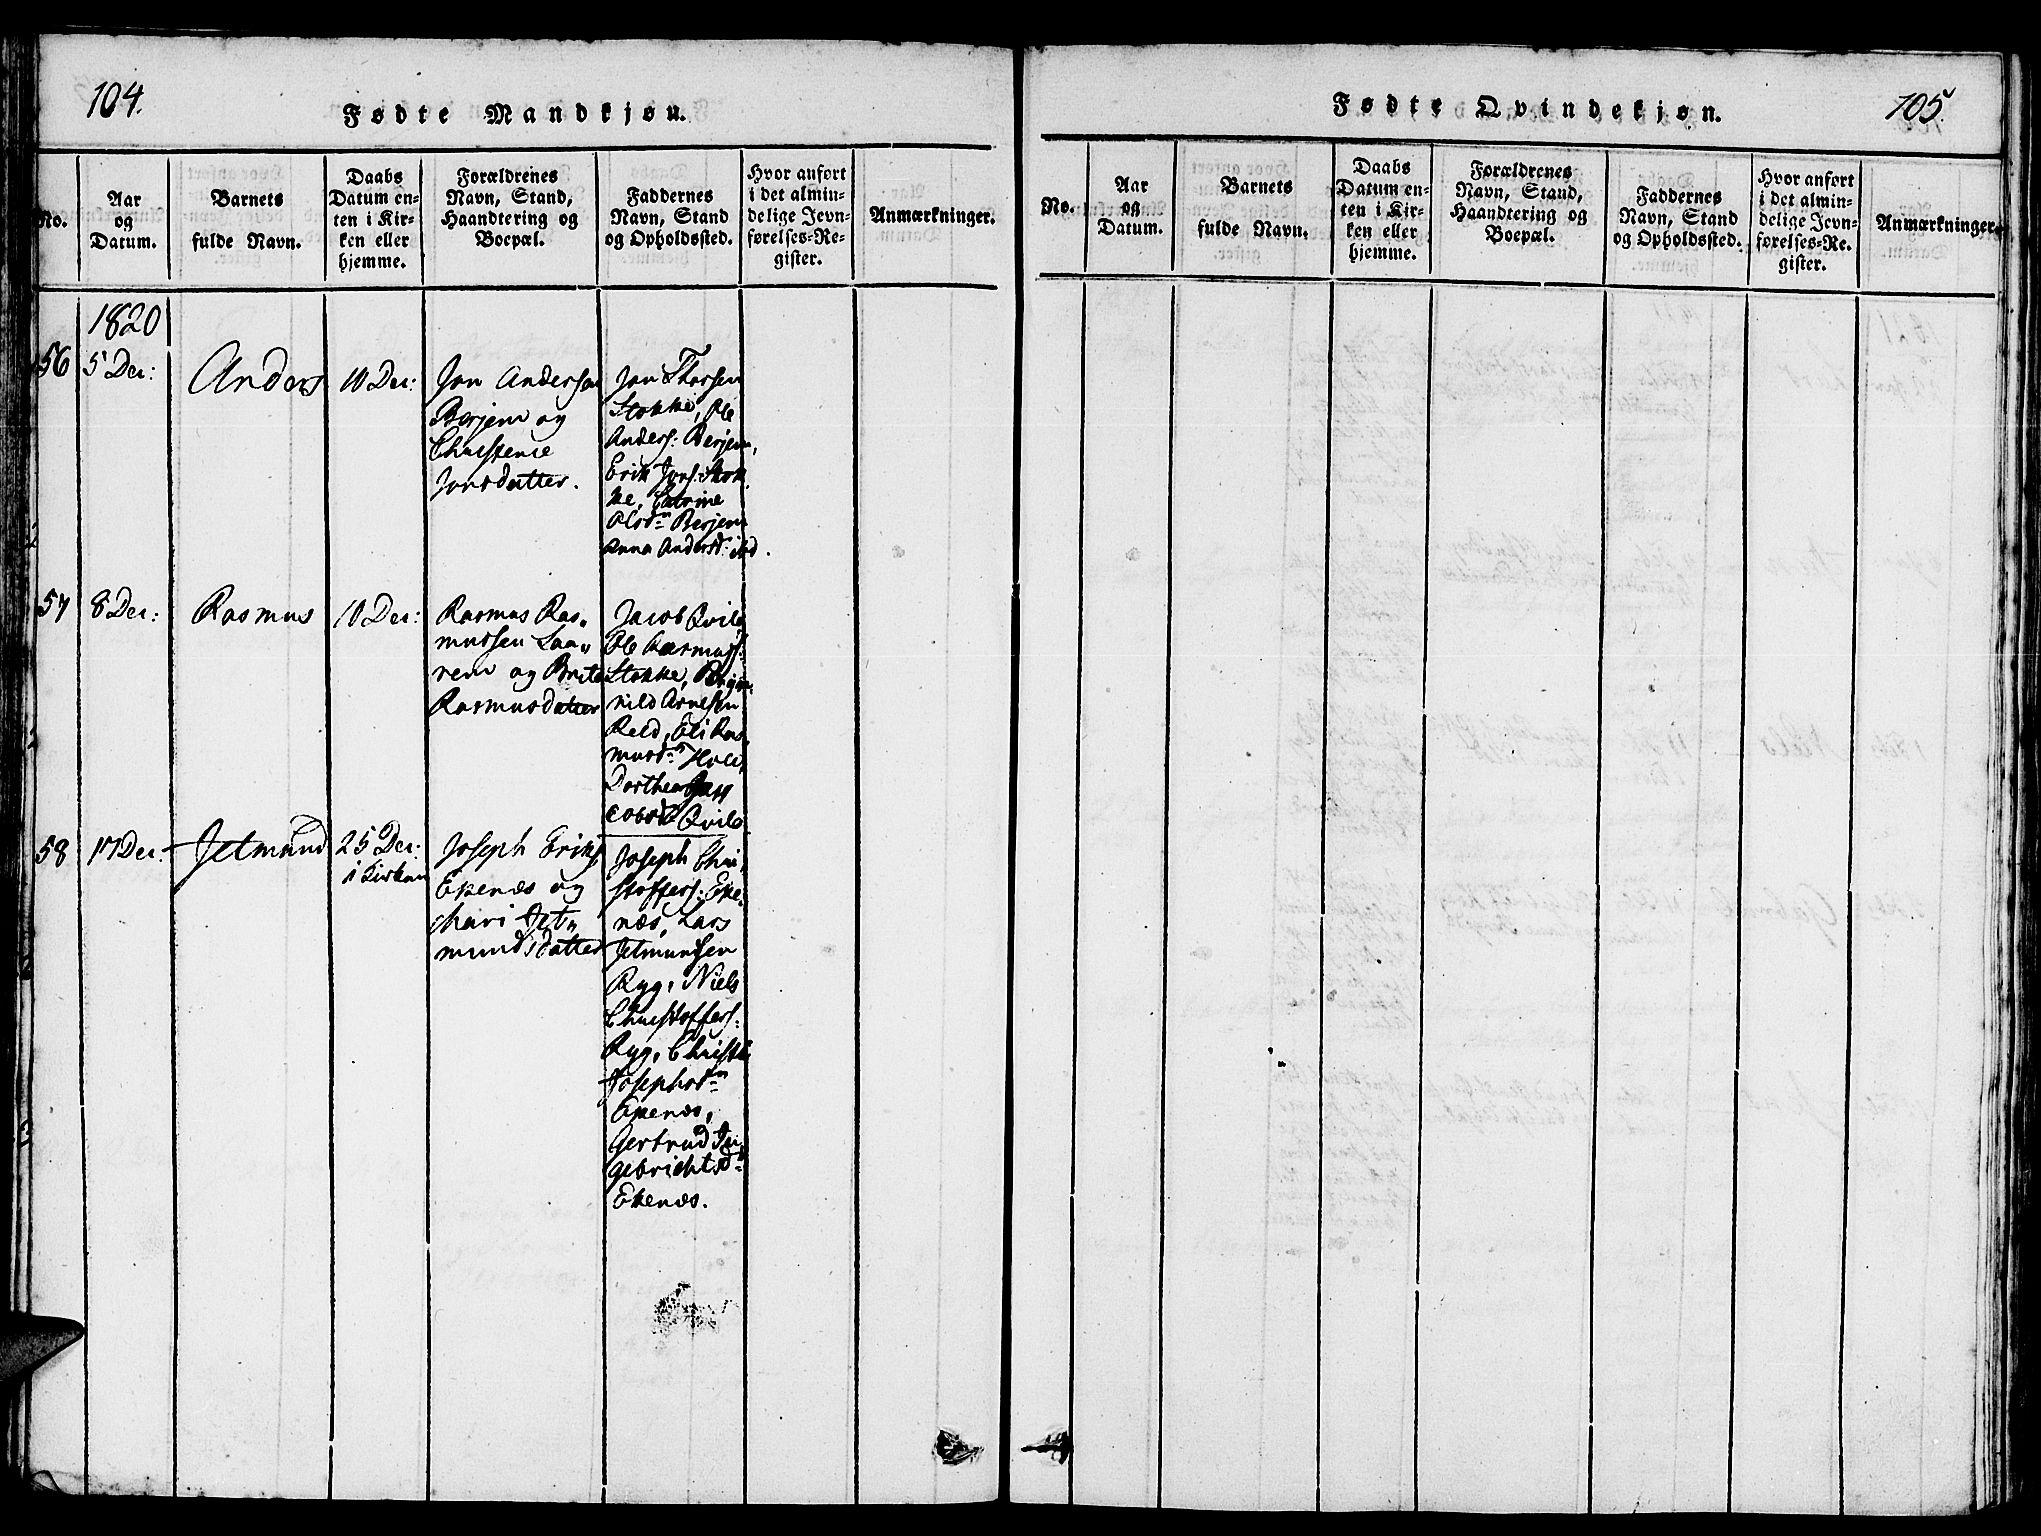 104.
Fødte Mandkjøn.
No.
Aar
og
Datum.
Barnets
fulde Navn.
Daabs
Datum en-
ten i Kir-
ken eller
hjemme.
Forældrenes
Navn, Stand,
Haandtering og
Boepæl.
Faddernes
Navn, Stand
og Opholdssted.
Hvor anført
i det almin-
delige Jevn-
førelses-Re-
gister.
Anmærkninger.
1820
56
5 Dec:
Anders
10 Dec:
Jon Andersen
Berjem og
Christense
Jonsdatter.
Jon Thorsen
Stokke, Ole
Anders: Berjem,
Erik Jons: Stok
ke, Catrine
Olsdn Berjem
Anna Andersd: ibd.
57
8 Dec:
Rasmus
10 Dec:
Rasmus Ras„
mussen Laa„
rem og Brite
Rasmusdatter
Jacob Qvile,
Ole Rasmuss:
Stokke,
nild Arnesen
Reld, Eli Ras
musdn Hole,
Dorthea Ja
cobsd Qvile
58
17 Dec:
Jetmund
25 Dec:
i Kirken
Joseph Eriks
Ekenæs og
Mari Jet„
mundsdatter
Joseph Chri
stoffers: Eke
næs, Lars
Jetmundsen
Ryg, Niels
Christoffers:
Ryg, Christi
Josephsdn
Ekenæs,
Gertrud In
gebrichtsdn
Ekenæs.
Fødte Qvindekjøn.
105.
No.
Aar
og
Datum.
Barnets
fulde Navn.
Daabs
Datum en-
ten i Kir-
ken eller
hjemme.
Forældrenes
Navn, Stand,
Haandtering og
Boepæl.
Faddernes
Navn, Stand
og Opholdssted.
Hvor anført
i det almin-
delige Jevn-
førelses-Re-
gister.
Anmærkninger.